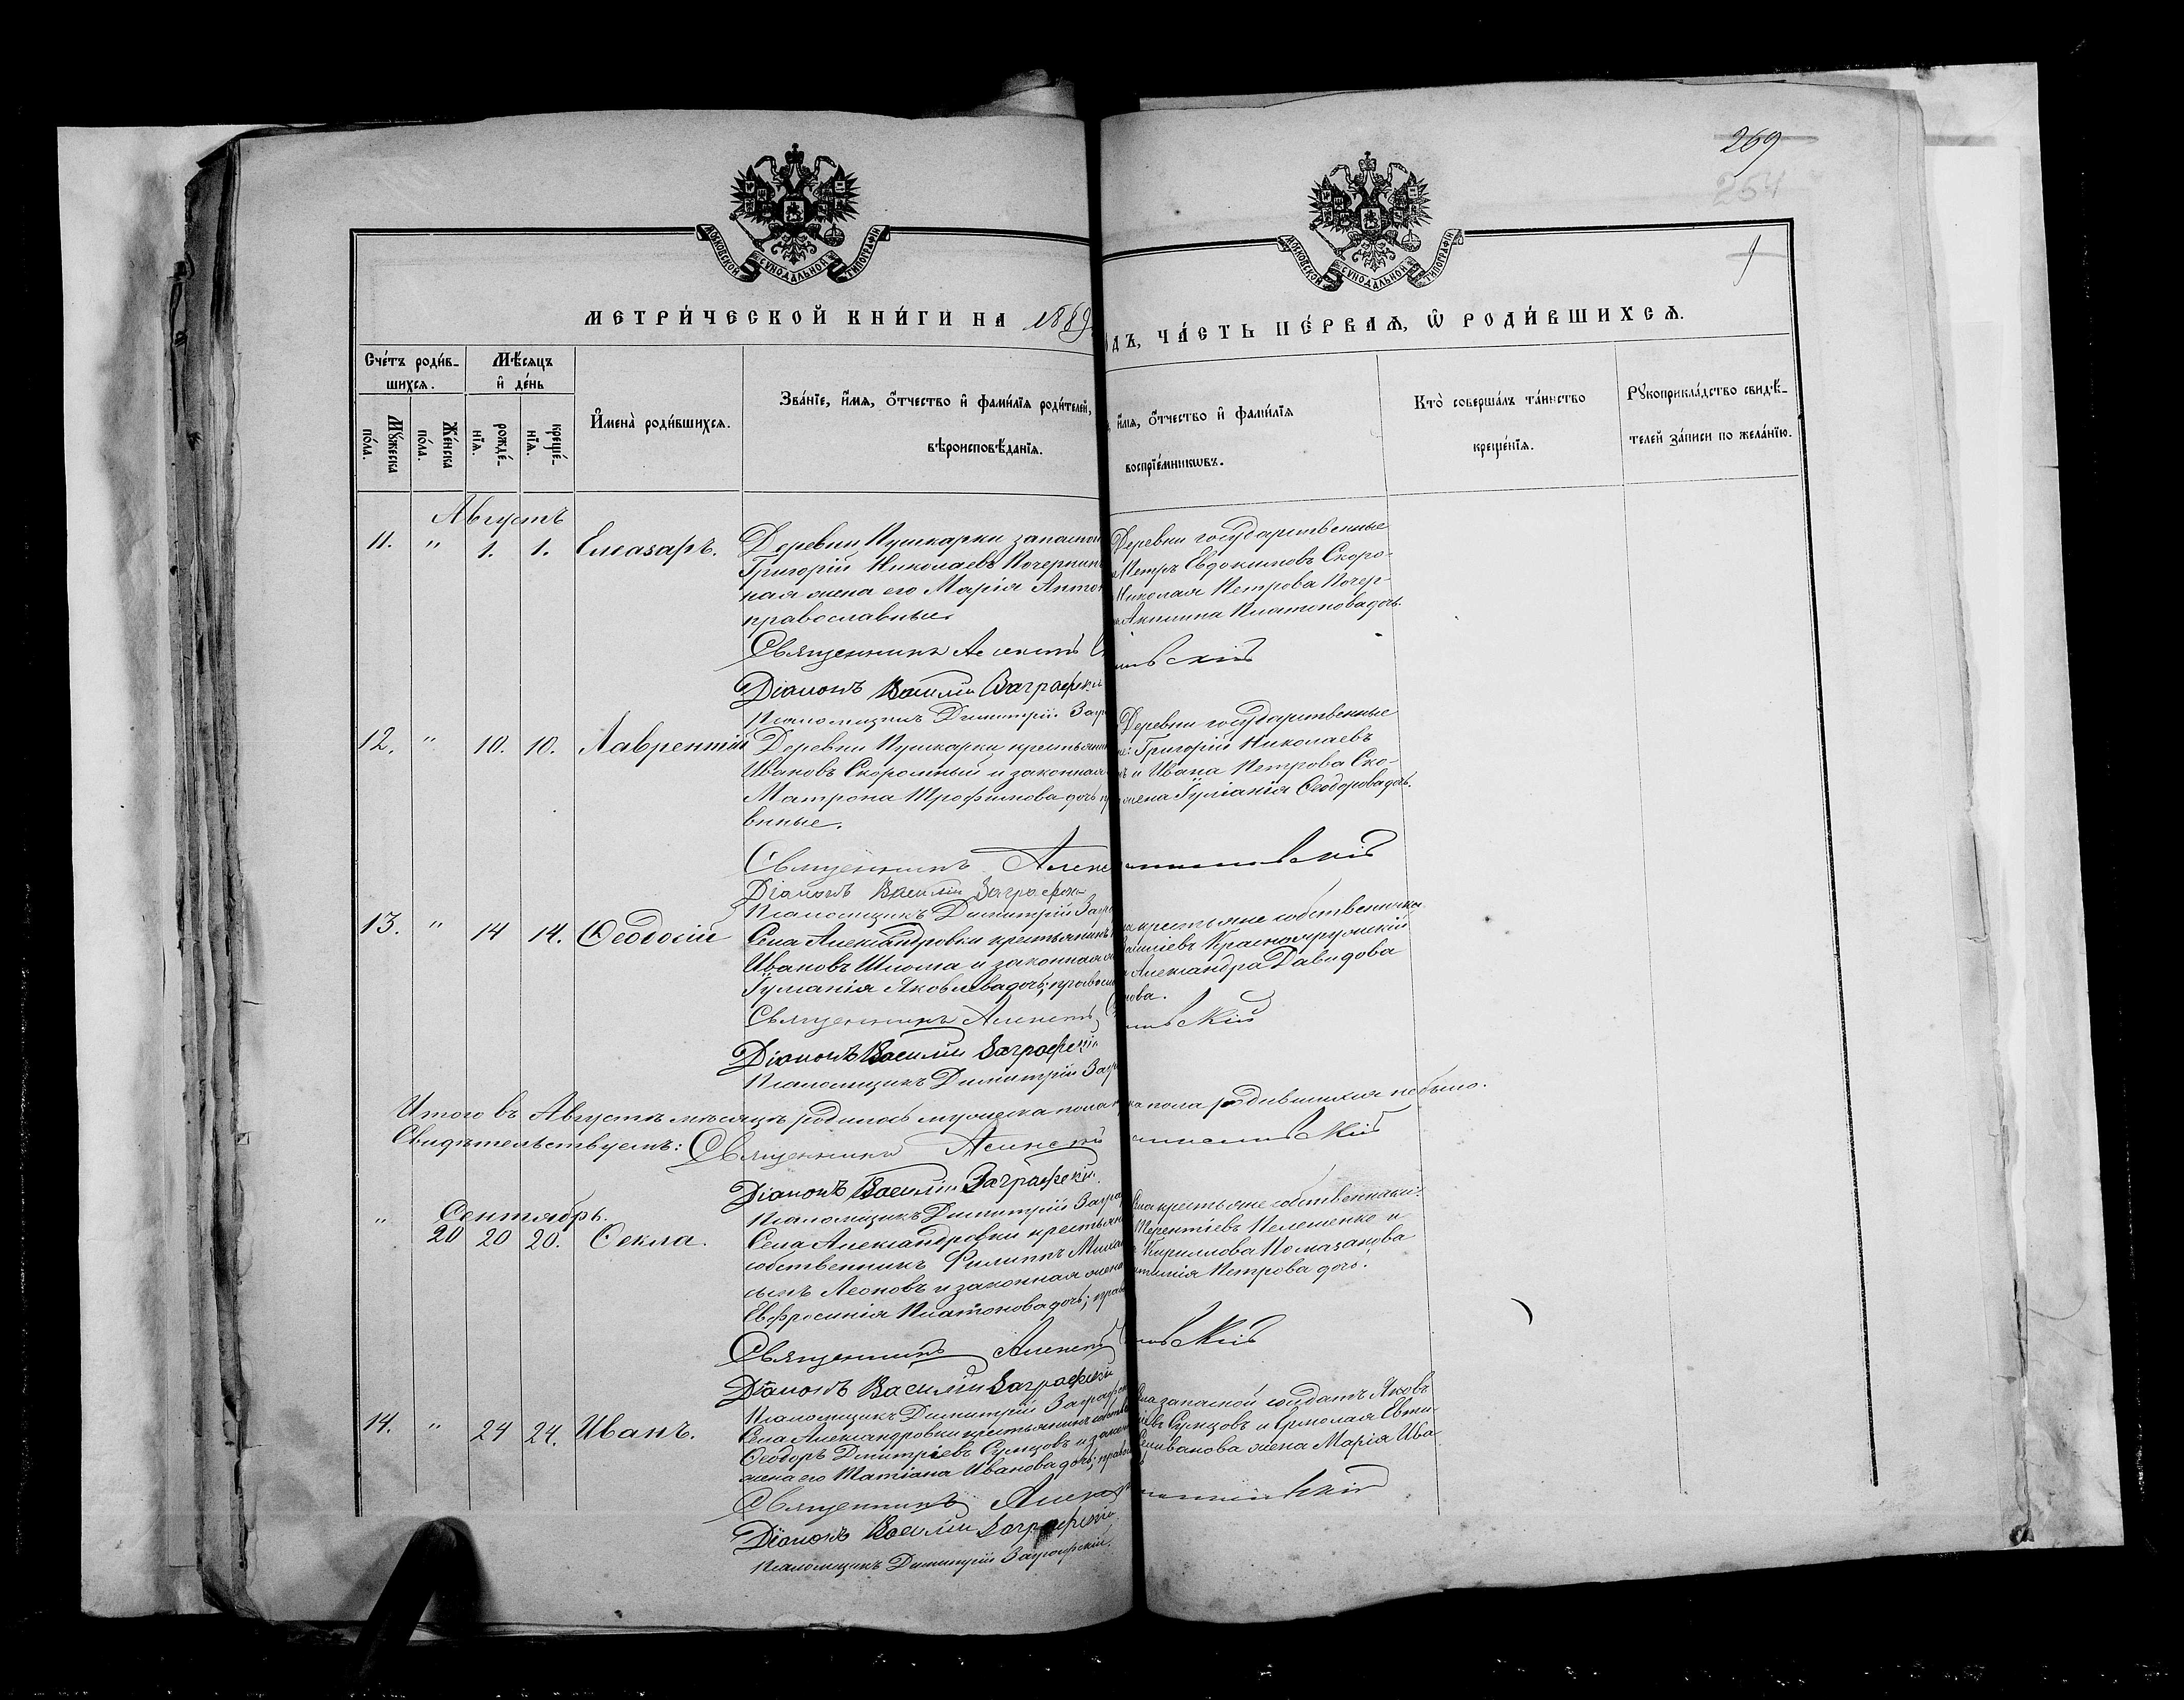 269
254
МОСКОВСКОЙ СѴНОДАЛЬНОЙ ТИПОГРАФІИ
МОСКОВСКОЙ СѴНОДАЛЬНОЙ ТИПОГРАФІИ
МЕТРИ́ЧЕСКОЙ КНИ́ГИ НА 1889
ДЪ, ЧА́СТЬ ПЕ́РВАѦ, Ѡ҆ РОДИ́ВШИХСѦ.
Сче́тъ роди́в-
шихсѧ.
Мѣ́сѧцъ
и҆ де́нь
Мꙋ́жеска по́ла.
Же́нска по́ла.
рожде́-нїѧ.
креще́-нїѧ.
И҆мена̀ роди́вшихсѧ.
Зва́нїе, и҆́мѧ, ѻ҆́тчество и҆ фами́лїѧ роди́телей,
вѣроисповѣ́данїѧ.
и҆́мѧ, ѻ҆́тчество и҆ фами́лїѧ
воспрїе́мникѡвъ.
Кто̀ соверша́лъ та́инство
креще́нїѧ.
Рꙋкоприкла́дство свидѣ́-
телей за́писи по жела́нїю.
Августъ
11. " 1. 1. Елеазаръ.
Деревни Пушкарки запасной
Григорій Николаевъ Почерпин
ная жена его Марія Антон
православные
Священникъ Алексѣй
Діаконъ Василій Заграфскі
Псаломщикъ Димитрій Загр
Деревни государственные
Петръ Евдокимовъ Скоро-
Николая Петрова Почер-
Акилина Платонова дочь.
12. " 10. 10. Лаврентій
Деревни Пушкарки крестьянин
Ивановъ Скоромный и законная
Матрона Трофимова дочь
вные.
Священникъ Алекс
Діаконъ Василій Заграфск
Псаломщикъ Димитрій Загр
Деревни государственные
Григорій Николаевъ
и Ивана Петрова Ско-
жена Іуліанія Ѳеодорова дочь.
13. " 14 14. Ѳеодосій
Села Александровки крестьянинъ
Ивановъ Шлома и законная
Іуліанія Яковлева дочь; правосл
Священникъ Алексѣй
Діаконъ Василій Заграфскій
Псаломщикъ Димитрій Загр
крестьяне собственники
Василіевъ Краснояружскій
Александра Давидова
нова.
Итого въ Августѣ мѣсяцѣ родилось мужеска пола
ка пола родившихся не было.
Свидѣтельствуемъ: Священникъ Алексѣй
Діаконъ Василій Заграфскій
Псаломщикъ Димитрій Загра
Сентябрь.
" 20 20 20. Ѳекла.
Села Александровки крестьян
собственникъ Филиппъ Миха
сынъ Леоновъ и законная жена
Евфросинія Платонова дочь; прав
Священникъ Алексѣй
Діаконъ Василій Заграфскій
Псаломщикъ Димитрій Заграфск
крестьяне собственники:
Терентіевъ Пелешенко и
Кириллова Помазанова
Петрова дочь.
14. " 24 24. Иванъ.
Села Александровки крестьянинъ собств
Ѳеодоръ Дмитріевъ Сумцовъ и закон
жена его Татіана Иванова дочь; правос
Священникъ Алекс
Діаконъ Василій Заграфскій
Псаломщикъ Димитрій Заграфскій.
запасной солдатъ Яковъ
Сумцовъ и Ермолая Евти-
Селиванова жена Марія Ива-